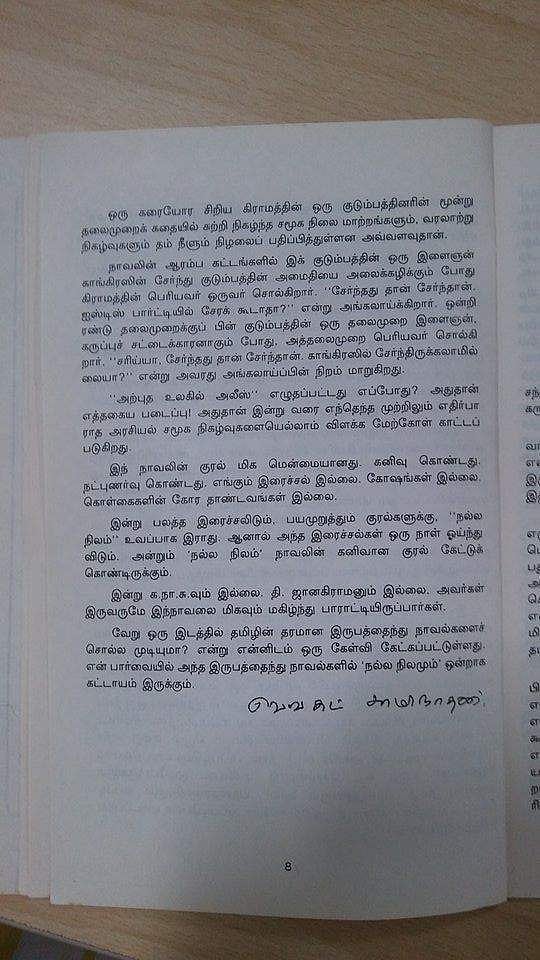 ஒரு கரையோர சிறிய கிராமத்தின் ஒரு குடும்பத்தினரின் மூன்று
தலைமுறைக் கதையில் சுற்றி நிகழ்ந்த சமூக நிலை மாற்றங்களும், வரலாற்று
நிகழ்வுகளும் தம் நீளும் நிழலைப் பதிப்பித்துள்ளன அவ்வளவுதான்.
நாவலின் ஆரம்ப கட்டங்களில் இக் குடும்பத்தின் ஒரு இளைஞன்
காங்கிரஸின் சேர்ந்து குடும்பத்தின் அமைதியை அலைக்கழிக்கும் போது
கிராமத்தின் பெரியவர் ஒருவர் சொல்கிறார். "சேர்ந்தது தான் சேர்ந்தான்.
ஐஸ்டிஸ் பார்ட்டியில் சேரக் கூடாதா?" என்று அங்கலாய்க்கிறார். ஒன்றி
ரண்டு தலைமுறைக்குப் பின் குடும்பத்தின் ஒரு தலைமுறை இளைஞன்,
கருப்புச் சட்டைக்காரனாகும் போது, அத்தலைமுறை பெரியவர் சொல்கி
றார். "சரிய்யா, சேர்ந்தது தான சேர்ந்தான். காங்கிரஸில் சேர்ந்திருக்கலாமில்
லையா?" என்று அவரது அங்கலாய்ப்பின் நிறம் மாறுகிறது.
"அற்புத உலகில் அலீஸ்" எழுதப்பட்டது எப்போது? அதுதான்
எத்தகைய படைப்பு! அதுதான் இன்று வரை எந்தெந்த முற்றிலும் எதிர்பா
ராத அரசியல் சமூக நிகழ்வுகளையெல்லாம் விளக்க மேற்கோள் காட்டப்
படுகிறது.
இந் நாவலின் குரல் மிக மென்மையானது. கனிவு கொண்டது.
நட்புணர்வு கொண்டது. எங்கும் இரைச்சல் இல்லை. கோஷங்கள் இல்லை.
கொள்கைகளின் கோர தாண்டவங்கள் இல்லை.
இன்று பலத்த இரைச்சலிடும், பயமுறுத்தும் குரல்களுக்கு, "நல்ல
நிலம்" உவப்பாக இராது. ஆனால் அந்த இரைச்சல்கள் ஒரு நாள் ஓய்ந்து
விடும். அன்றும் 'நல்ல நிலம்' நாவலின் கனிவான குரல் கேட்டுக்
கொண்டிருக்கும்.
இன்று க.நா.சு.வும் இல்லை. தி. ஜானகிராமனும் இல்லை. அவர்கள்
இருவருமே இந்நாவலை மிகவும் மகிழ்ந்து பாராட்டியிருப்பார்கள்.
வேறு ஒரு இடத்தில் தமிழின் தரமான இருபத்தைந்து நாவல்களைச்
சொல்ல முடியுமா? என்று என்னிடம் ஒரு கேள்வி கேட்கப்பட்டுள்ளது.
என் பார்வையில் அந்த இருபத்தைந்து நாவல்களில் 'நல்ல நிலமும்' ஒன்றாக
கட்டாயம் இருக்கும்.
வெங்கட் சாமிநாதன்
8